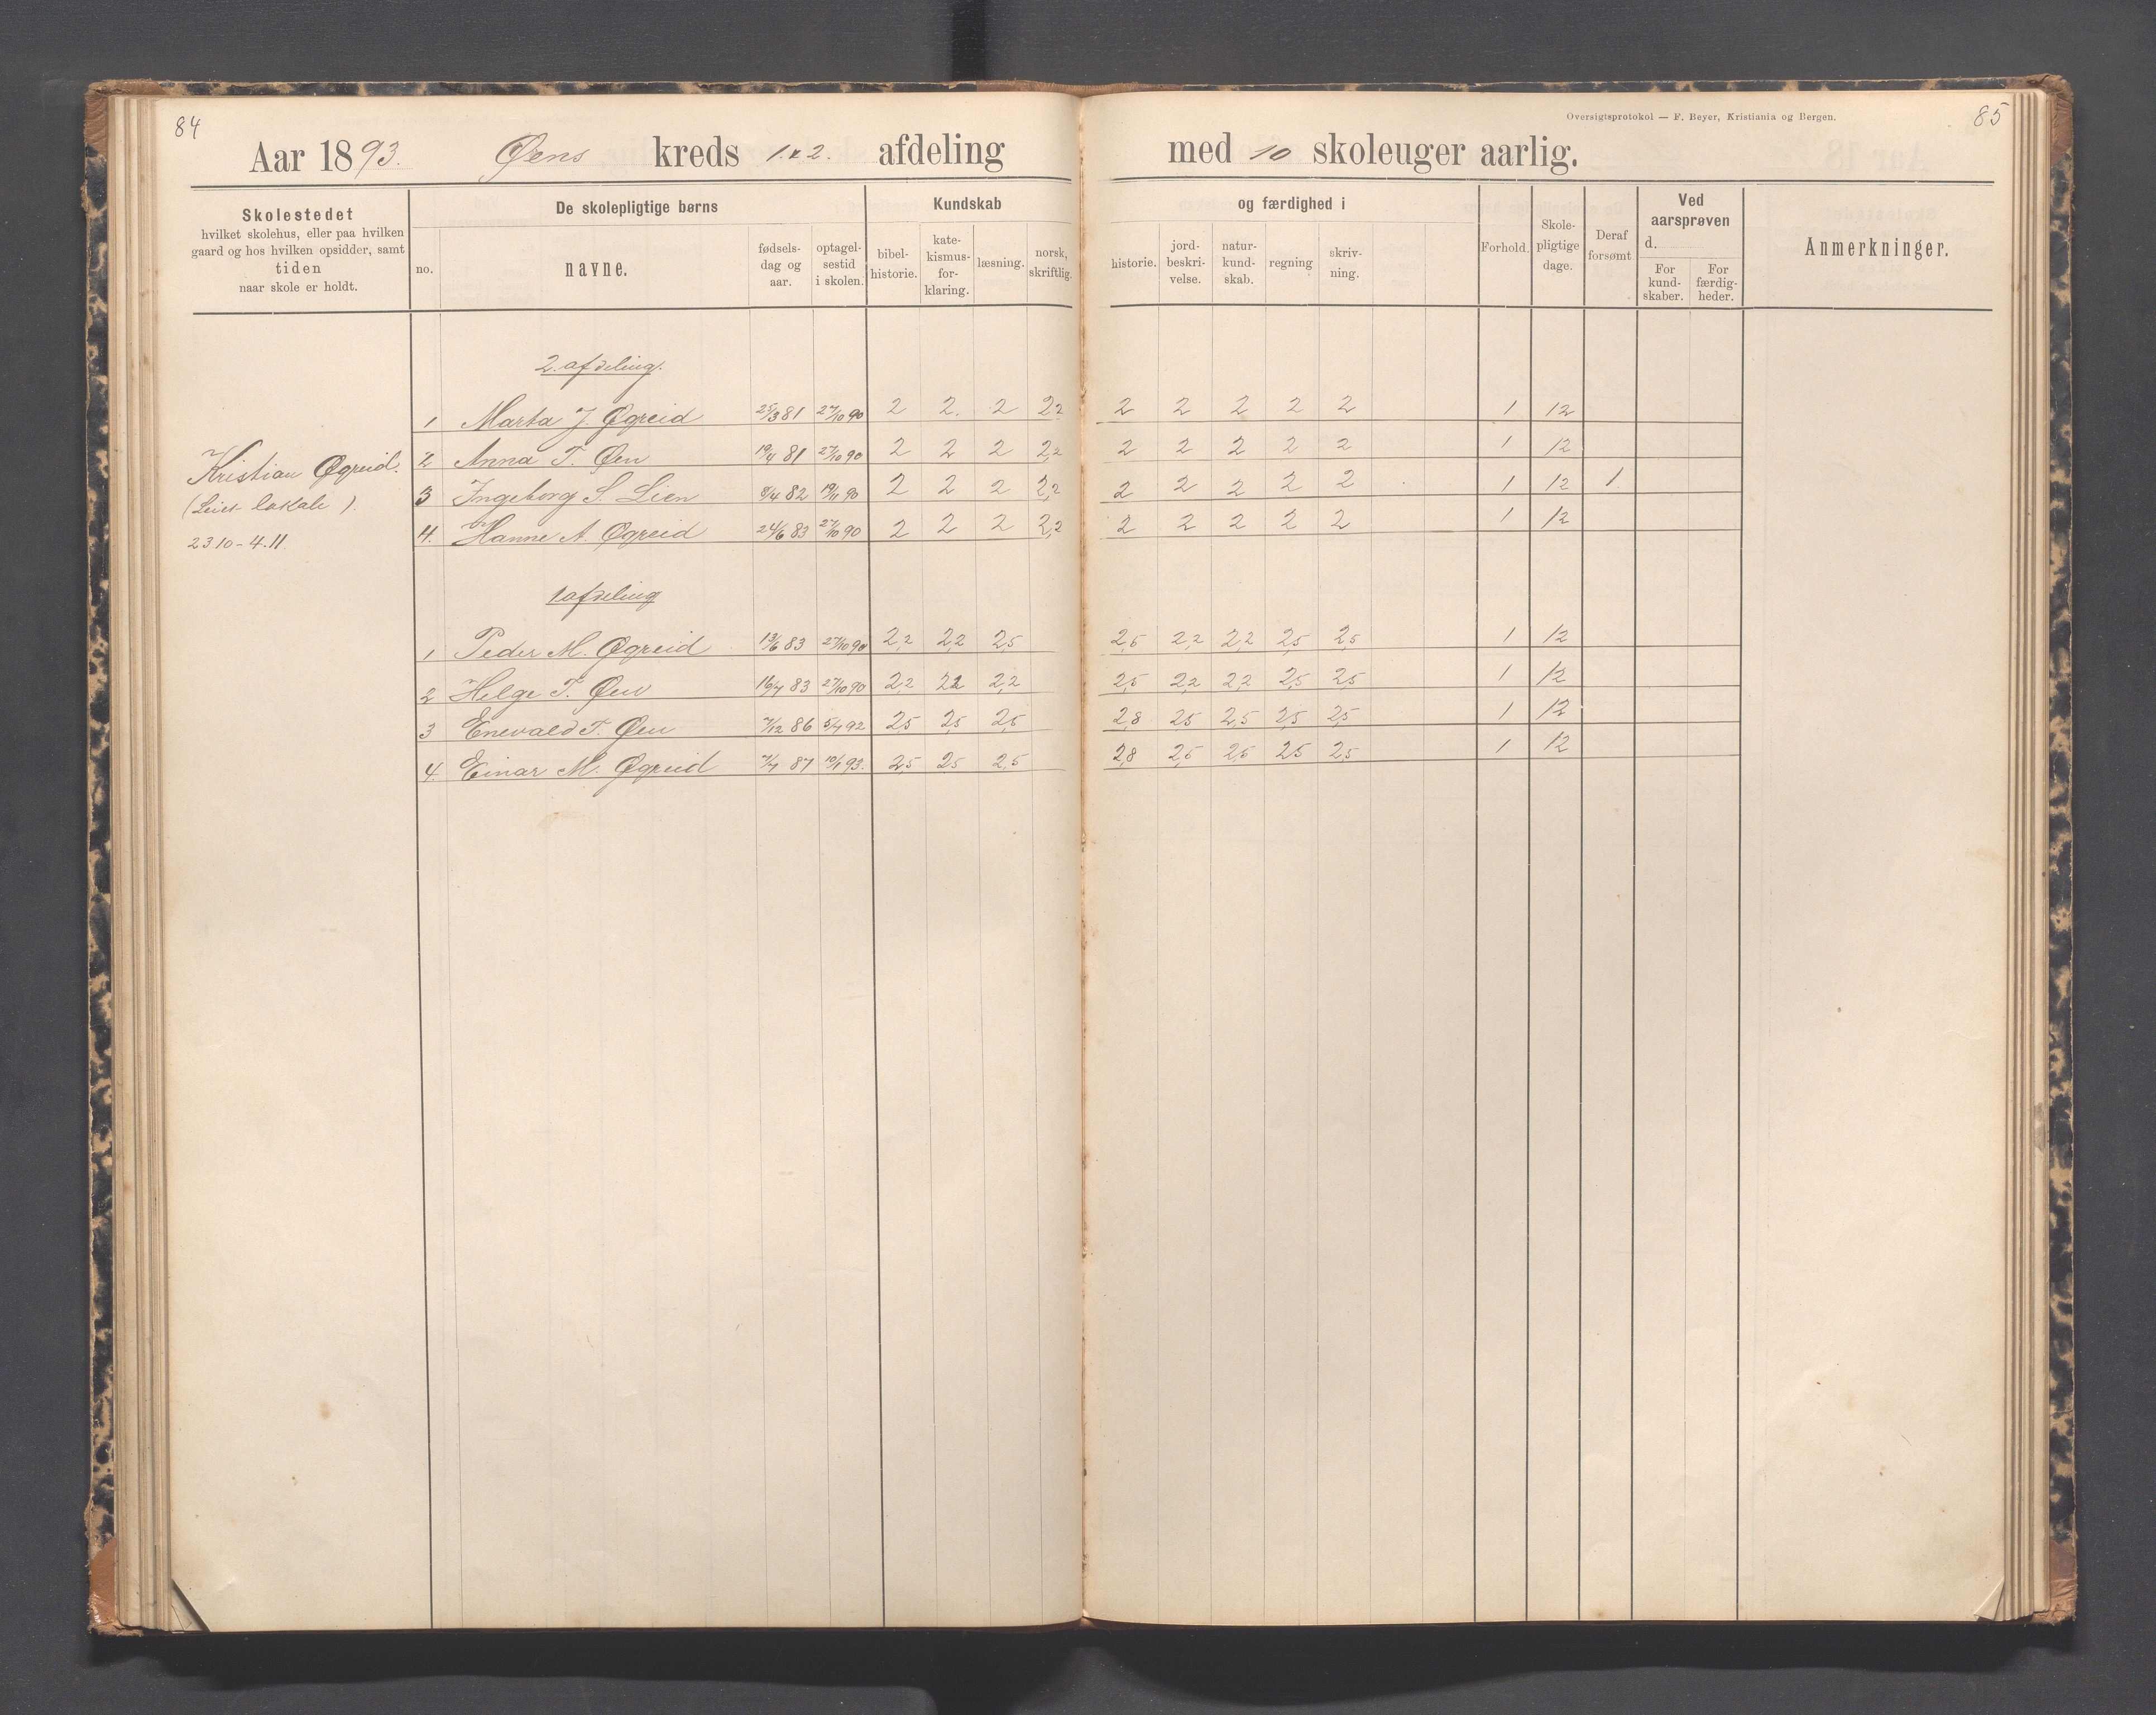 84
85
Oversigtsprotokol — F. Beyer, Kristiania og Bergen.
Aar 1893. Øens kreds 1. & 2. afdeling med 10 skoleuger aarlig.
Skolestedet
hvilket skolehus, eller paa hvilken
gaard og hos hvilken opsidder, samt
tiden
naar skole er holdt.
De skolepligtige børns
no.
navne.
fødsels-
dag og
aar.
optagel-
sestid
i skolen.
Kundskab
bibel-
historie.
kate-
kismus-
for-
klaring.
læsning.
norsk,
skriftlig.
og færdighed i
historie.
jord-
beskri-
velse.
natur-
kund-
skab.
regning
skriv-
ning.
Forhold.
Skole-
pligtige
dage.
Deraf
forsømt
Ved
aarsprøven
d.
For
kund-
skaber.
For
færdig-
heder.
Anmerkninger.
2. afdeling.
1 Marta J. Øgreid 25/3 81 27/10 90 2 2. 2 2,2 2 2 2 2 2 1 12
2 Anna T. Øen 19/4 81 27/10 90 2 2 2 2,2 2 2 2 2 2 1 12
3 Ingeborg S. Lien 8/4 82 19/11 90 2 2 2 2,2 2 2 2 2 2 1 12 1.
4. Hanne A. Øgreid 24/6 83 27/10 90 2 2 2 2,2 2 2 2 2 2 1 12
Kristian Øgreid.
(Leiet lokale).
23.10-4.11
1 afdeling
1 Peder M. Øgreid 13/6 83 27/10 90 2,2 2,2 2,5 2,5 2,2 2,2 2,5 2,5 1 12
2 Helge T. Øen 16/7 83 27/10 90 2,2 2,2 2,2 2,5 2,2 2,2 2,5 2,5 1 12
3 Enevald T. Øen 7/12 86 5/7 92 2,5 2,5 2,5 2,8 2,5 2,5 2,5 2,5 1 12
4. Einar M. Øgreid 7/7 87 10/1 93. 2,5 2,5 2,5 2,8 2,5 2,5 2,5 2,5 1 12